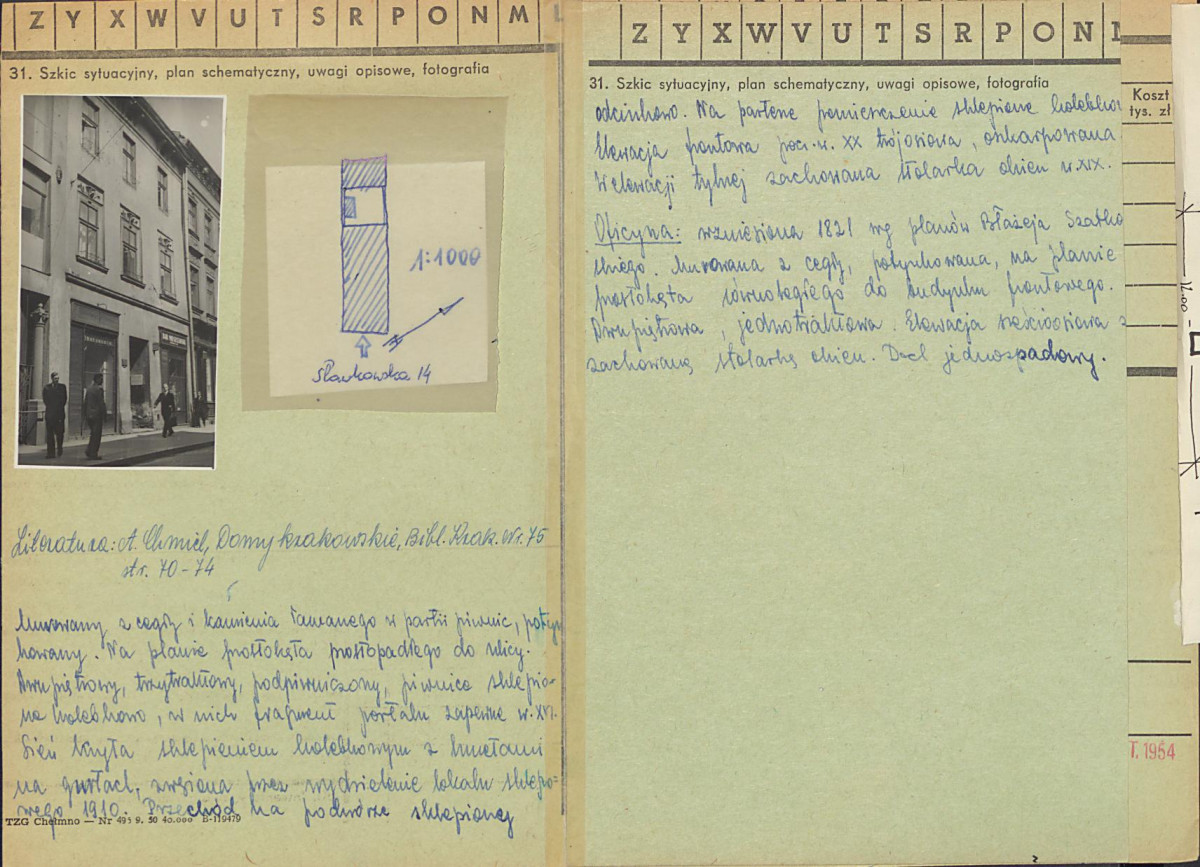 Z Y X W V U T S R P O N M L
31. Szkic sytuacyjny, plan schematyczny, uwagi opisowe, fotografia
1:1000
Sławkowska 14
Literatura: A. Chmiel, Domy krakowskie, Bibl. Krak. Nr. 75
str. 70-74
Murowany z cegły i kamienia łamanego w partii piwnic, potyn
kowany. Na planie prostokąta prostopadłego do ulicy.
Dwupiętrowy, trzytraktowy, podpiwniczony, piwnice sklepio-
ne kolebkowo, w nich fragment portalu zapewne w. XVI.
Sień kryta sklepieniem kolebkowym z lunetami
na gurtach, zwężona przez wydzielenie lokalu sklepo-
wego 1910. Przechód na podwórze sklepionej
TZG Chełmno — Nr 493 9. 50 40.000 B-119479
Z Y X W V U T S R P O N
31. Szkic sytuacyjny, plan schematyczny, uwagi opisowe, fotografia
odcinkowo. Na parterze pomieszczenie sklepione kolebkow
Elewacja frontowa pocz. w. XX trójosiowa, oskarpowana
W elewacji tylnej zachowana stolarka okien w. XIX.
Oficyna: wzniesiona 1821 wg planów Błażeja Szatko
skiego. Murowana z cegły, potynkowana, na planie
prostokąta równoległego do budynku frontowego.
Dwupiętrowa, jednotraktowa. Elewacja sześcioosiowa z
zachowaną stolarką okien. Dach jednospadowy.
Koszt
tys. zł
T. 1954